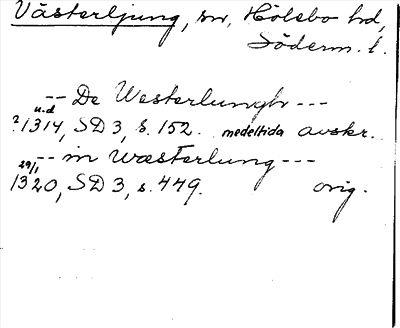 Västerljung, sn, Hölebo hd,
Söderm. l.
-- De Westerlungh ---
u.d
?1314, SD 3, s. 152. medeltida avskr.
-- in Wæsterlung ---
29/1
1320, SD 3, s. 449. orig.